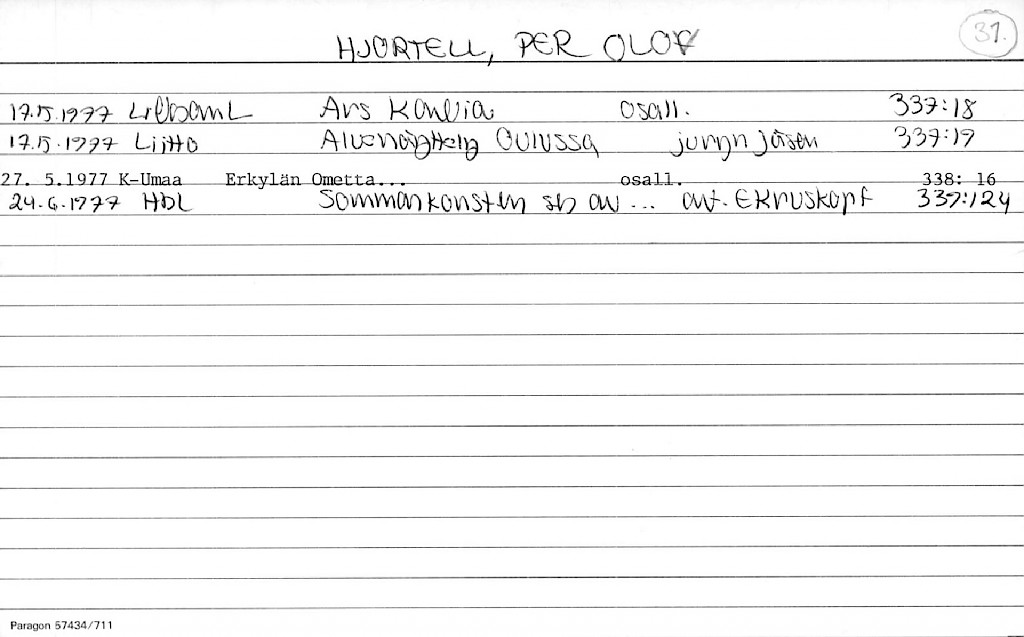 HJORTELL, PER OLOF
31.
17.5.1977 Ars Kanvia osall. 337:18
17.5.1977 Liitto Oulussa juryn jäsen 337:19
27. 5.1977 K-Umaa Erkylän Ometta... osall. 338: 16
24.6.1977 HBL Sommarkonsten ... ant. E Kruskopf 337:124
Paragon 57434/711